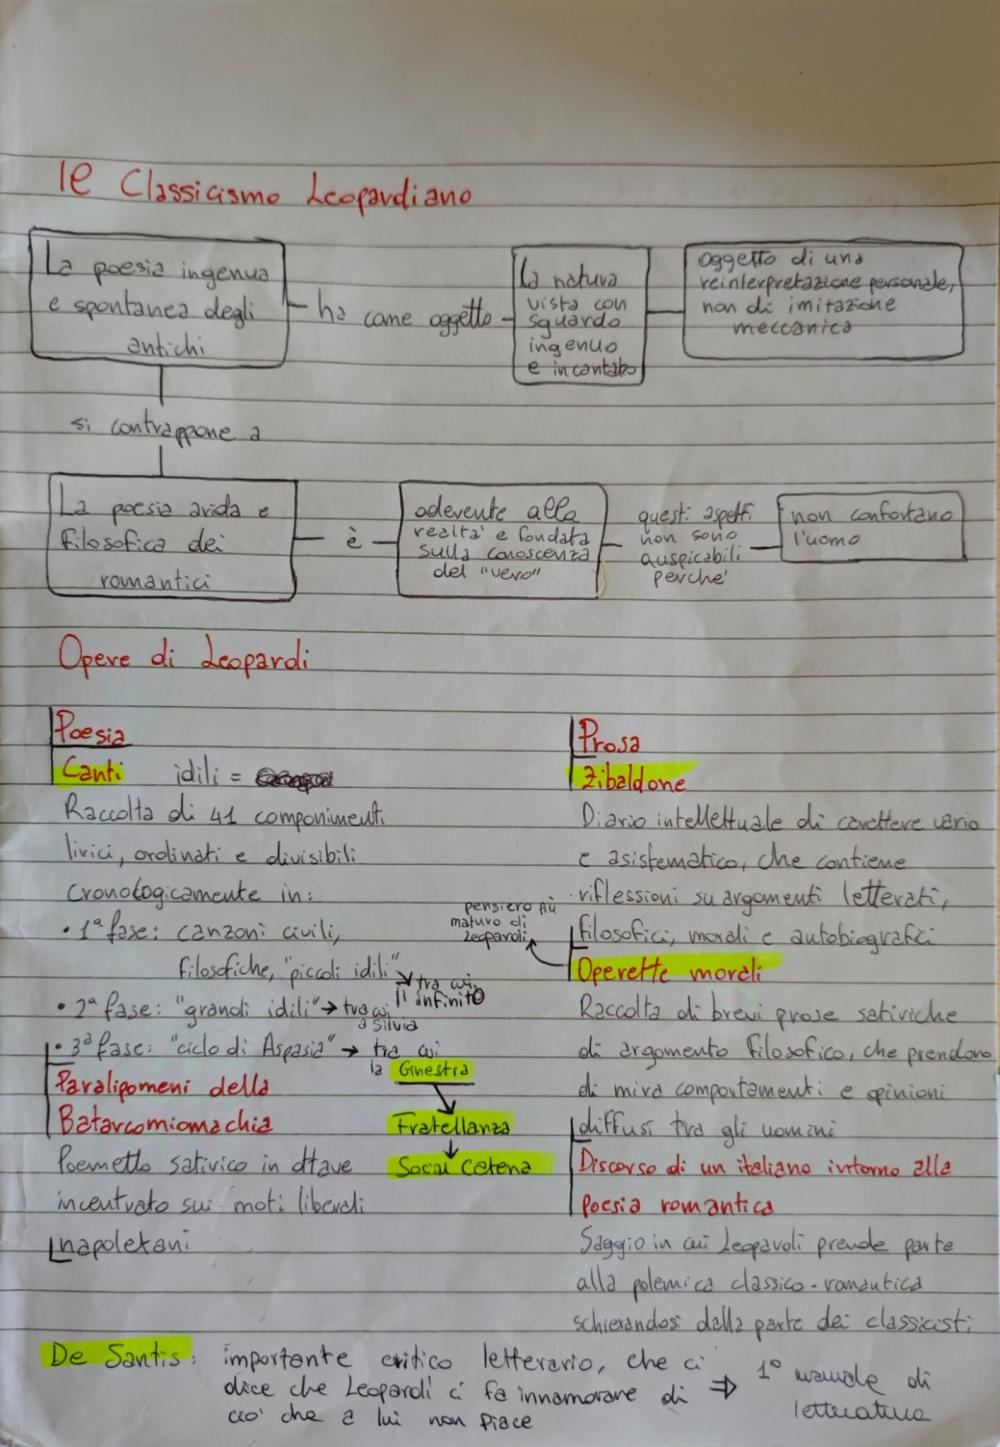 le Classicismo Leopardiano
La poesia ingenua
e spontanea degli
antichi
ha come oggetto
La natura
vista con
sguardo
ingenuo
e incantato
oggetto di una
reinterpretazione personale,
non di imitazione
meccanica
si contrappone a
La poesia arida e
filosofica dei
romantici
è
aderente alla
realtà e fondata
sulla conoscenza
del "vero"
questi aspetti
non sono
auspicabili
perche'
non confortano
l'uomo
Opere di Leopardi
Poesia
Canti idili =
Raccolta di 41 componimenti
lirici, ordinati e divisibili
cronologicamente in:
• 1ª fase: canzoni civili,
filosofiche, "piccoli idili"
tra cui
l'infinito
• 2ª fase: "grandi idili" → tra cui
a Silvia
• 3ª fase: "ciclo di Aspasia" → tra cui
la Ginestra
Fratellanza
Social catena
Paralipomeni della
Batarcomiomachia
Poemetto satirico in ottave
incentrato sui moti liberali
napoletani
Prosa
Zibaldone
Diario intellettuale di carattere vario
e asistematico, che contiene
riflessioni su argomenti letterati,
filosofici, morali e autobiografici
pensiero più
maturo di
Leopardi
Operette morali
Raccolta di brevi prose satiriche
di argomento filosofico, che prendono
di mira comportamenti e opinioni
diffusi tra gli uomini
Discorso di un italiano intorno alla
poesia romantica
Saggio in cui Leopardi prende parte
alla polemica classico-romantica
schierandosi dalla parte dei classicisti
De Santis: importante critico letterario, che ci
dice che Leopardi ci fa innamorare di
ciò che a lui non piace
⇒ 1° manuale di
letteratura